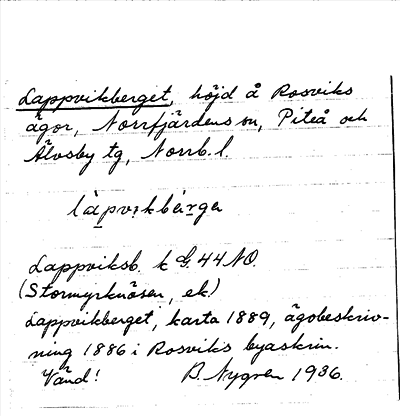 Lappvikberget, höjd å Rosviks
ägor, Norrfjärdens sn, Piteå och
Älvsby tg, Norrb. l.
làpvikbär̲ga
Lappviksb. k G. 44 NO.
(Stormyrknösen, ek.)
Lappvikberget, karta 1889, ägobeskriv-
ning 1886 i Rosviks byaskrin.
Vänd! B. Nygren 1936.